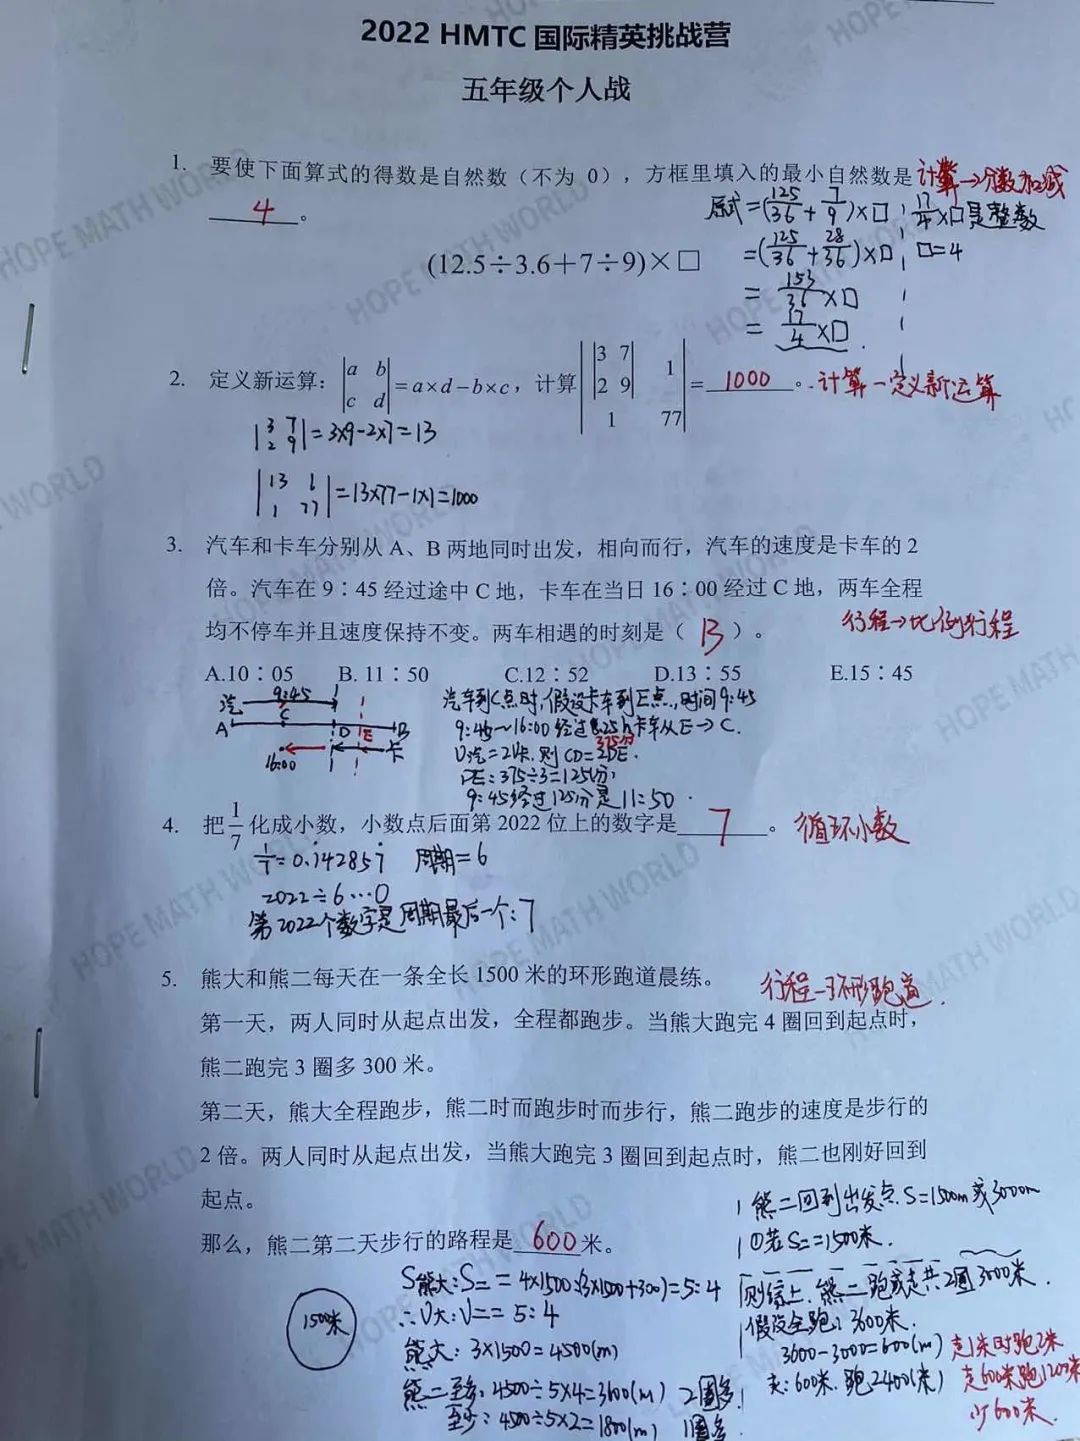 2022 HMTC 国际精英挑战营
五年级个人战
1. 要使下面算式的得数是自然数（不为 0），方框里填入的最小自然数是 计算→分数加减
4 。
原式=(125/36+7/9)×□ 17/4×□是整数
(12.5÷3.6+7÷9)×□
=(125/36+28/36)×□ □=4
=153/36×□
=17/4×□
2. 定义新运算：|a b c d|=a×d−b×c，计算 ||3 7 2 9| 1 1 77|= 1000 。 计算-定义新运算
|3 7 2 9|=3×9-2×7=13
|13 1 1 77|=13×77-1×1=1000
3. 汽车和卡车分别从 A、B 两地同时出发，相向而行，汽车的速度是卡车的 2
倍。汽车在 9∶45 经过途中 C 地，卡车在当日 16∶00 经过 C 地，两车全程
均不停车并且速度保持不变。两车相遇的时刻是（ B ）。 行程→比例行程
A.10∶05 B. 11∶50 C.12∶52 D.13∶55 E.15∶45
汽 9:45
A C D E B
16:00 卡
汽车到C点时,假设卡车到E点,时间9:45
9:45~16:00 经过6.25h卡车从E→C.
375分
V汽=2V卡.则CD=2DE.
DE:375÷3=125(分)
9:45经过125分是11:50
4. 把 1/7 化成小数，小数点后面第 2022 位上的数字是 7 。 循环小数
1/7=0.142857 周期=6
2022÷6…0
第2022个数字是周期最后一个:7
5. 熊大和熊二每天在一条全长 1500 米的环形跑道晨练。 行程-环形跑道
第一天，两人同时从起点出发，全程都跑步。当熊大跑完 4 圈回到起点时，
熊二跑完 3 圈多 300 米。
第二天，熊大全程跑步，熊二时而跑步时而步行，熊二跑步的速度是步行的
2 倍。两人同时从起点出发，当熊大跑完 3 圈回到起点时，熊二也刚好回到
起点。
那么，熊二第二天步行的路程是 600 米。
1500米
S熊大:S二=4×1500:(3×1500+300)=5:4
∴V大:V二=5:4
熊大:3×1500=4500(m)
熊二至多:4500÷5×4=3600(m) 2圈多
至少:4500÷5×2=1800(m) 1圈多
熊二回到出发点.S=1500m或3000m
①若S二=1500米.
则综上.熊二跑或走共2圈3000米.
假设全跑:3600米.
3600-3000=600(m)
走:600米.跑2400(米)
走1米时跑2米
走600米跑1200米
少600米.
HOPE MATH WORLD